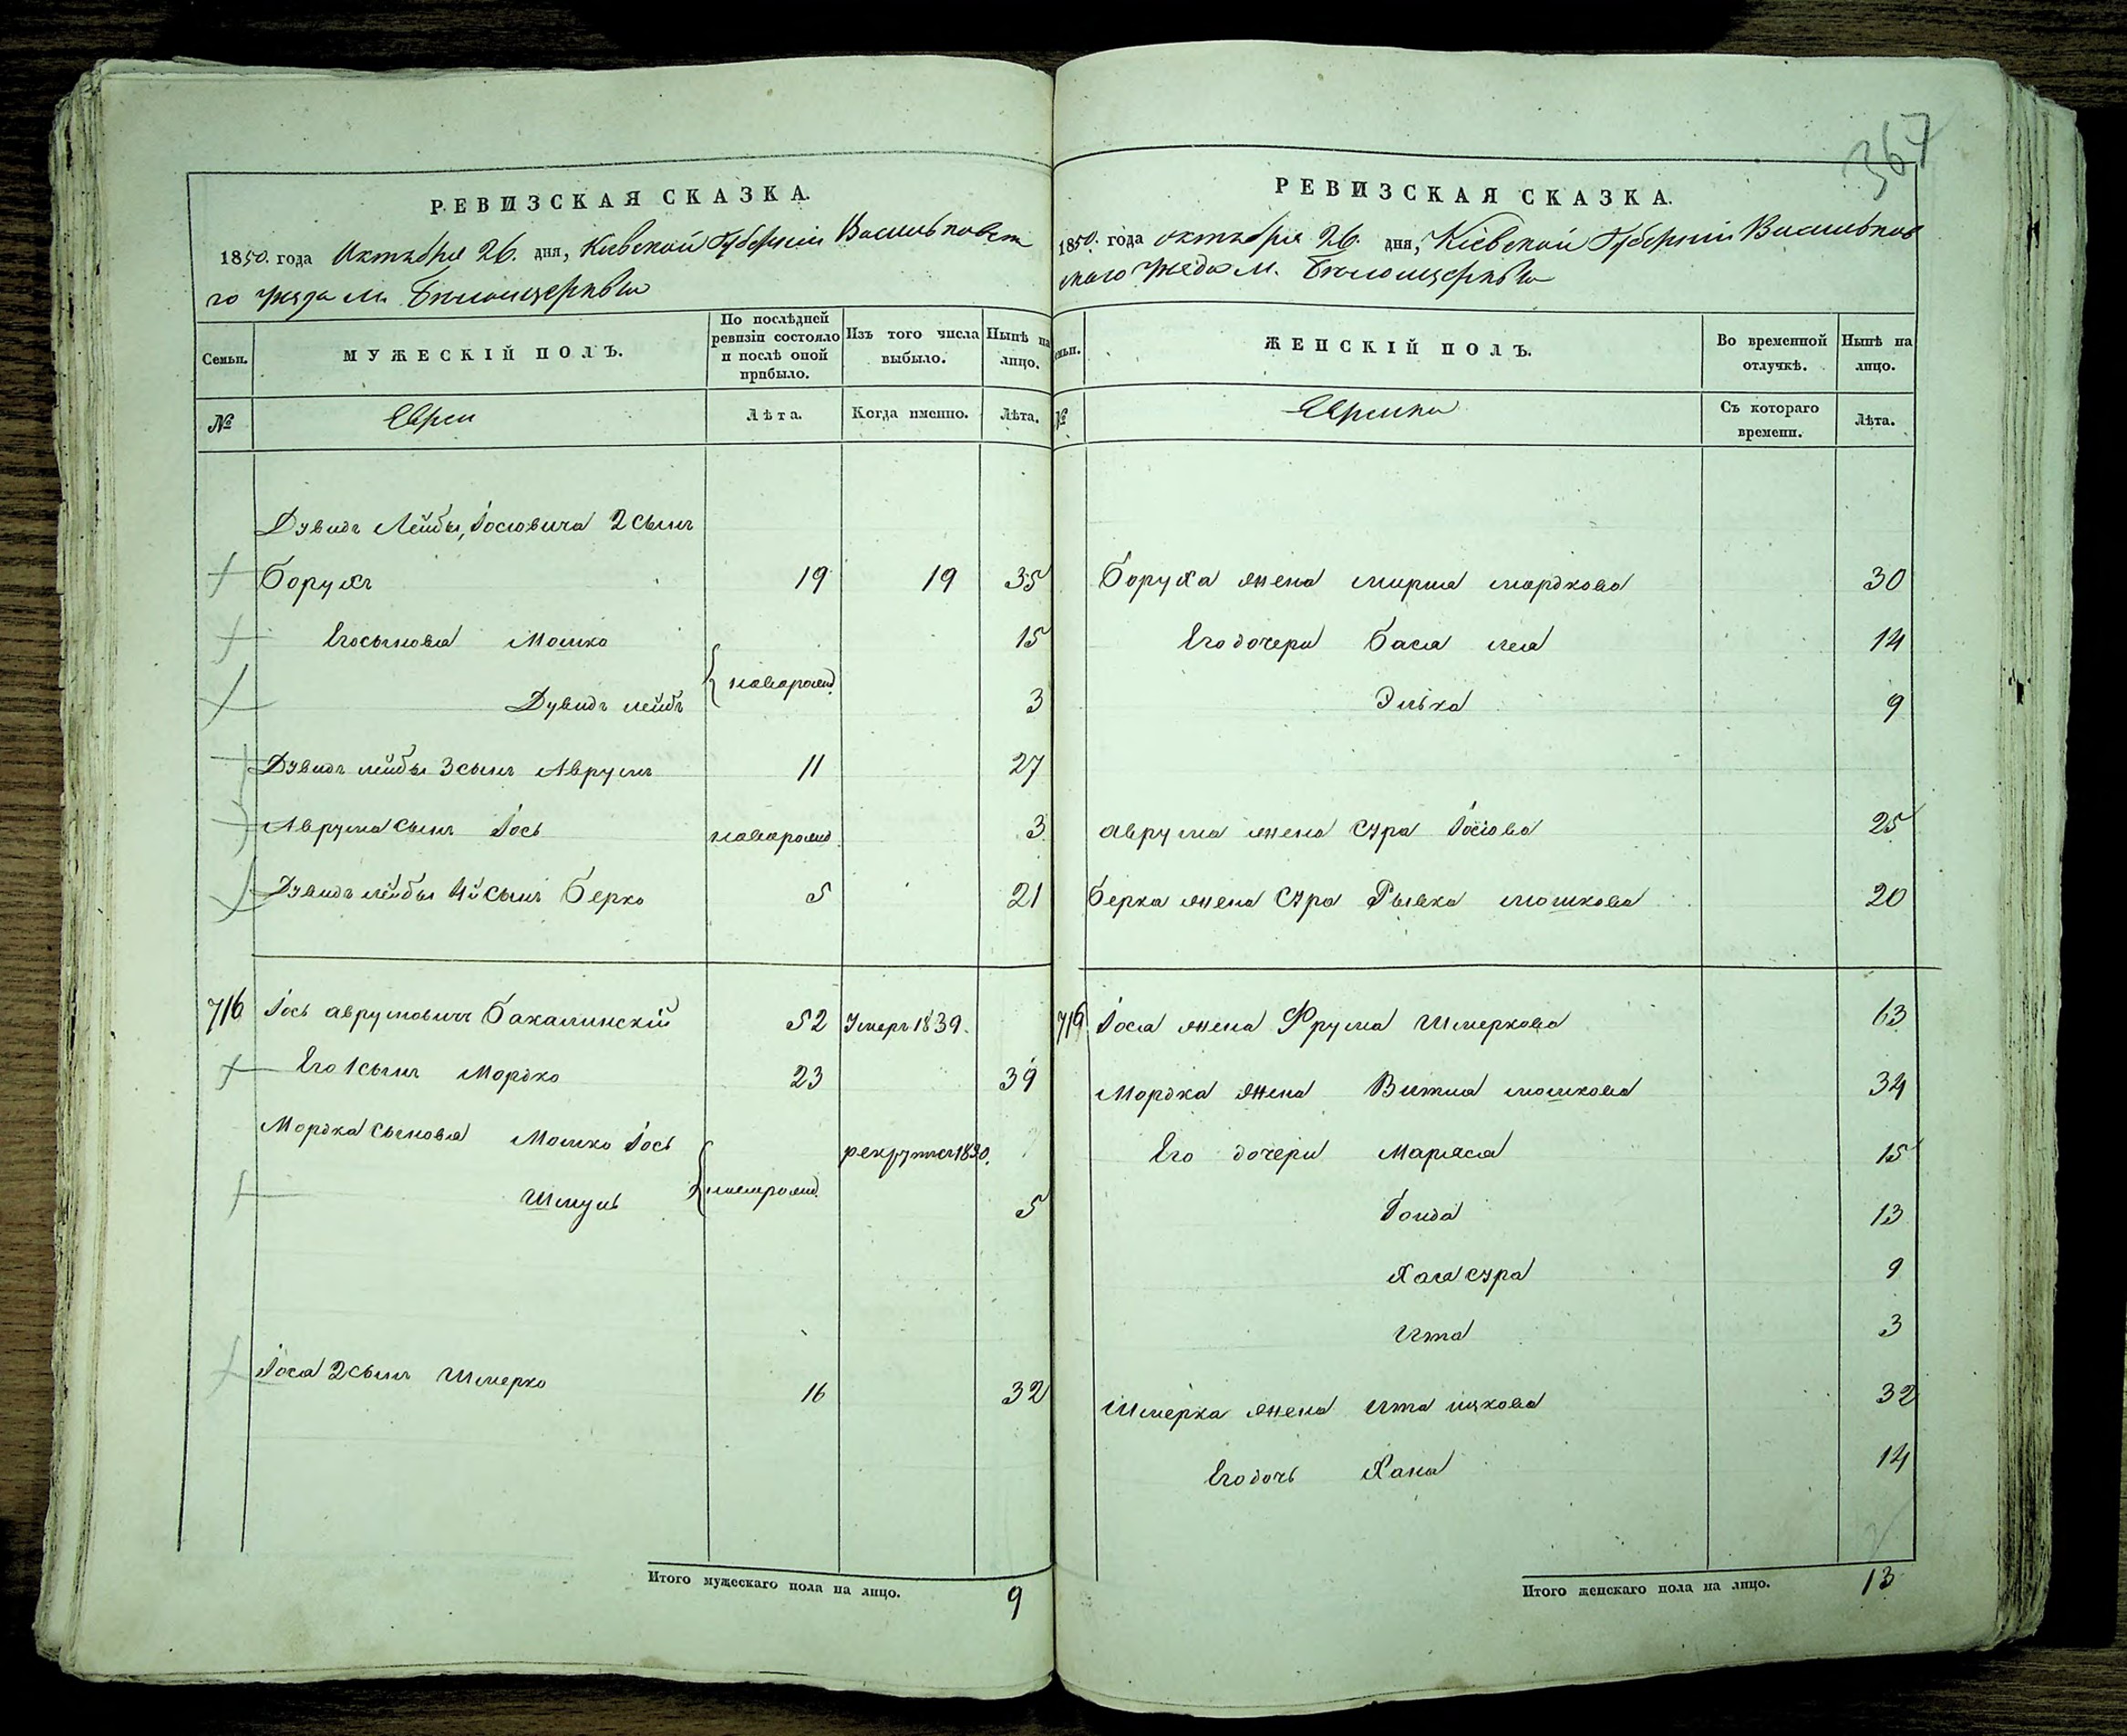 367
РЕВИЗСКАЯ СКАЗКА.
1850. года Октября 26. дня, Кіевской Губерніи Васильковск
го уезда м. Белоцеркви
Семьи. МУЖЕСКІЙ ПОЛЪ. По послѣдней ревизіи состояло и послѣ оной прибыло. Изъ того числа выбыло. Нынѣ на лицо.
№ Евреи Лѣта. Когда именно. Лѣта.
Дувидъ Лейбы Іосіовича 2 сынъ
Борухъ 19 19 35
Его сыновья Мошко 15
новорожд.
Дувидъ лейбъ 3
Дувидъ лейбы 3 сынъ Аврумъ 11 27
Аврума сынъ Іось новорожд. 3
Дувидъ лейбы 4й сынъ Берко 5 21
716 Іось аврумовичъ Бахалинскій 52 Умеръ 1839.
Его 1 сынъ Мордко 23 39
Мордка сыновья Мошко Іось
новорожд. Шмуль 5
Іося 2 сынъ Шмерко 16 32
Итого мужескаго пола на лицо. 9
РЕВИЗСКАЯ СКАЗКА.
1850. года октября 26. дня, Кіевской Губерніи Васильков
скаго уезда м. Белоцеркви
Семьи. ЖЕНСКІЙ ПОЛЪ. Во временной отлучкѣ. Нынѣ на лицо.
№ Еврейки Съ котораго времени. Лѣта.
Боруха жена мирля мордкова 30
Его дочери Бася лея 14
Элька 9
аврума жена Сура Іосіова 25
Берка жена Сура Рывка мошкова 20
716 Іося жена Фрума Шмеркова 63
Мордка жена Витля мошкова 34
Его дочери Маріяся 15
13
Хая сура 9
Ита 3
Шмерка жена Ита ицкова 32
Его дочь Хана 14
Итого женскаго пола на лицо. 13